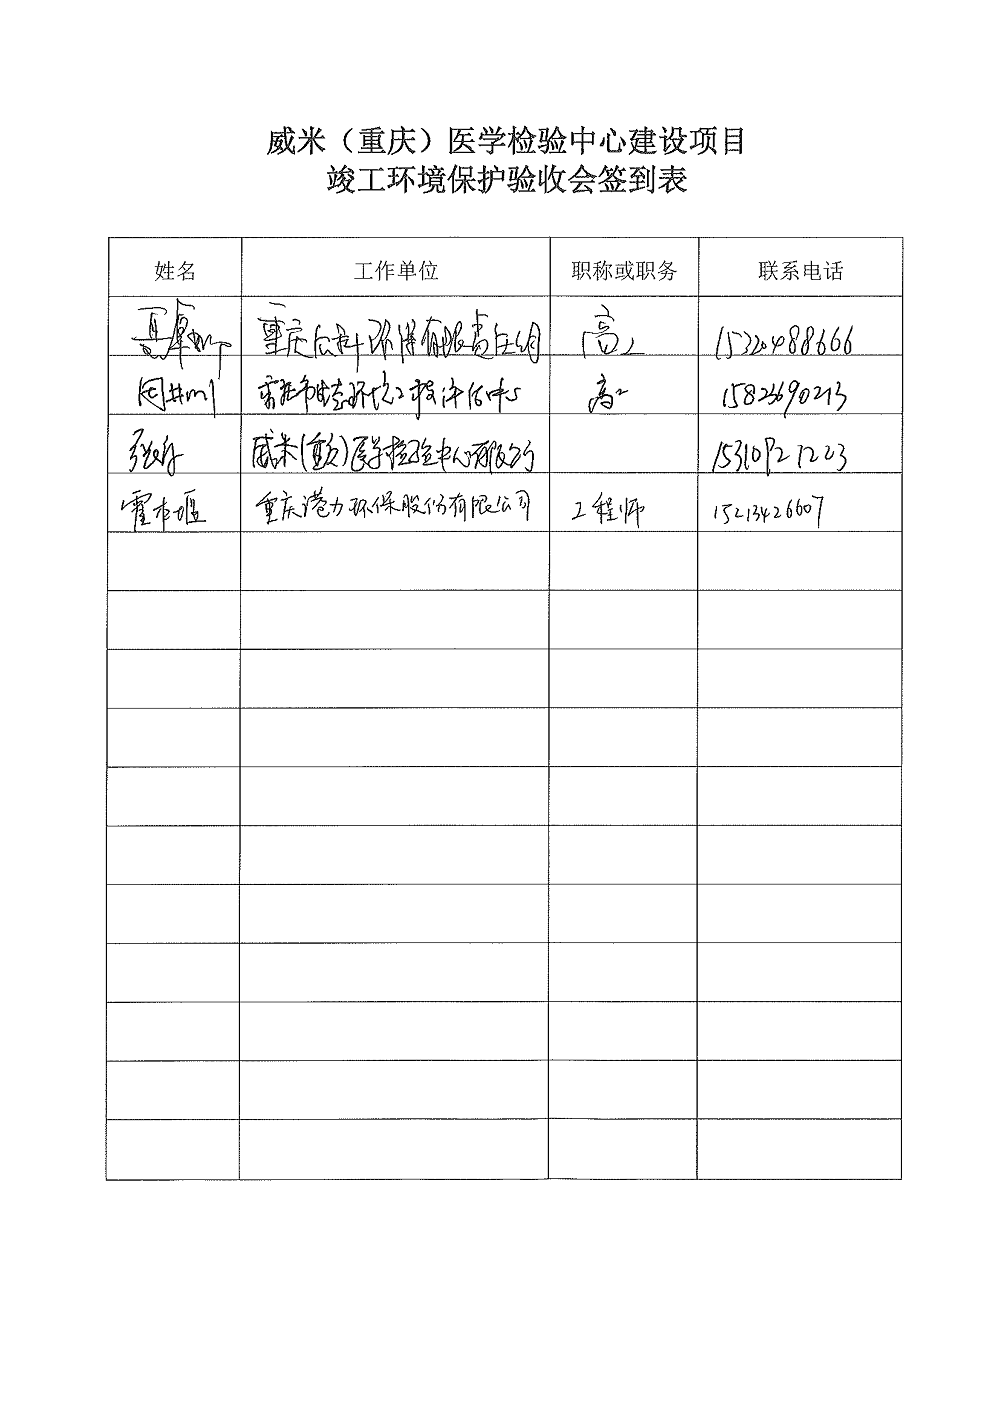 威米（重庆）医学检验中心建设项目
竣工环境保护验收会签到表
姓名 工作单位 职称或职务 联系电话
重庆 环保有限责任公司 高工 15320488666
重庆市生态环境工程评估中心 高工 15823690213
威米(重庆)医学检验中心有限公司 15310921223
霍本堰 重庆港力环保股份有限公司 工程师 15213426607